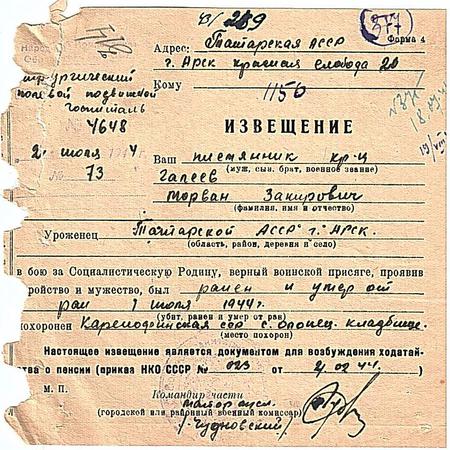 43/289
Форма 4
Адрес: Татарская АССР
г. Арск красная слобода 20
Хирургический
полевой подвижной
госпиталь
4648
Кому
1150
ИЗВЕЩЕНИЕ
2 июля 4
73
Ваш племянник кр-ц
(муж, сын, брат, военное звание)
Галеев
Морван Закирович
(фамилия, имя и отчество)
Уроженец Татарской АССР г. Арск.
(область, район, деревня и село)
в бою за Социалистическую Родину, верный воинской присяге, проявив
геройство и мужество, был ранен и умер от
ран 1 июля 1944г.
(убит, ранен и умер от ран)
похоронен Карелофинская сср с. Олонец. кладбище.
(место похорон)
Настоящее извещение является документом для возбуждения ходатай-
ства о пенсии (приказ НКО СССР № 023 от 4.02.44.
М. П.
Командир части
майор
(городской или районный военный комиссар)
(Чудновский)